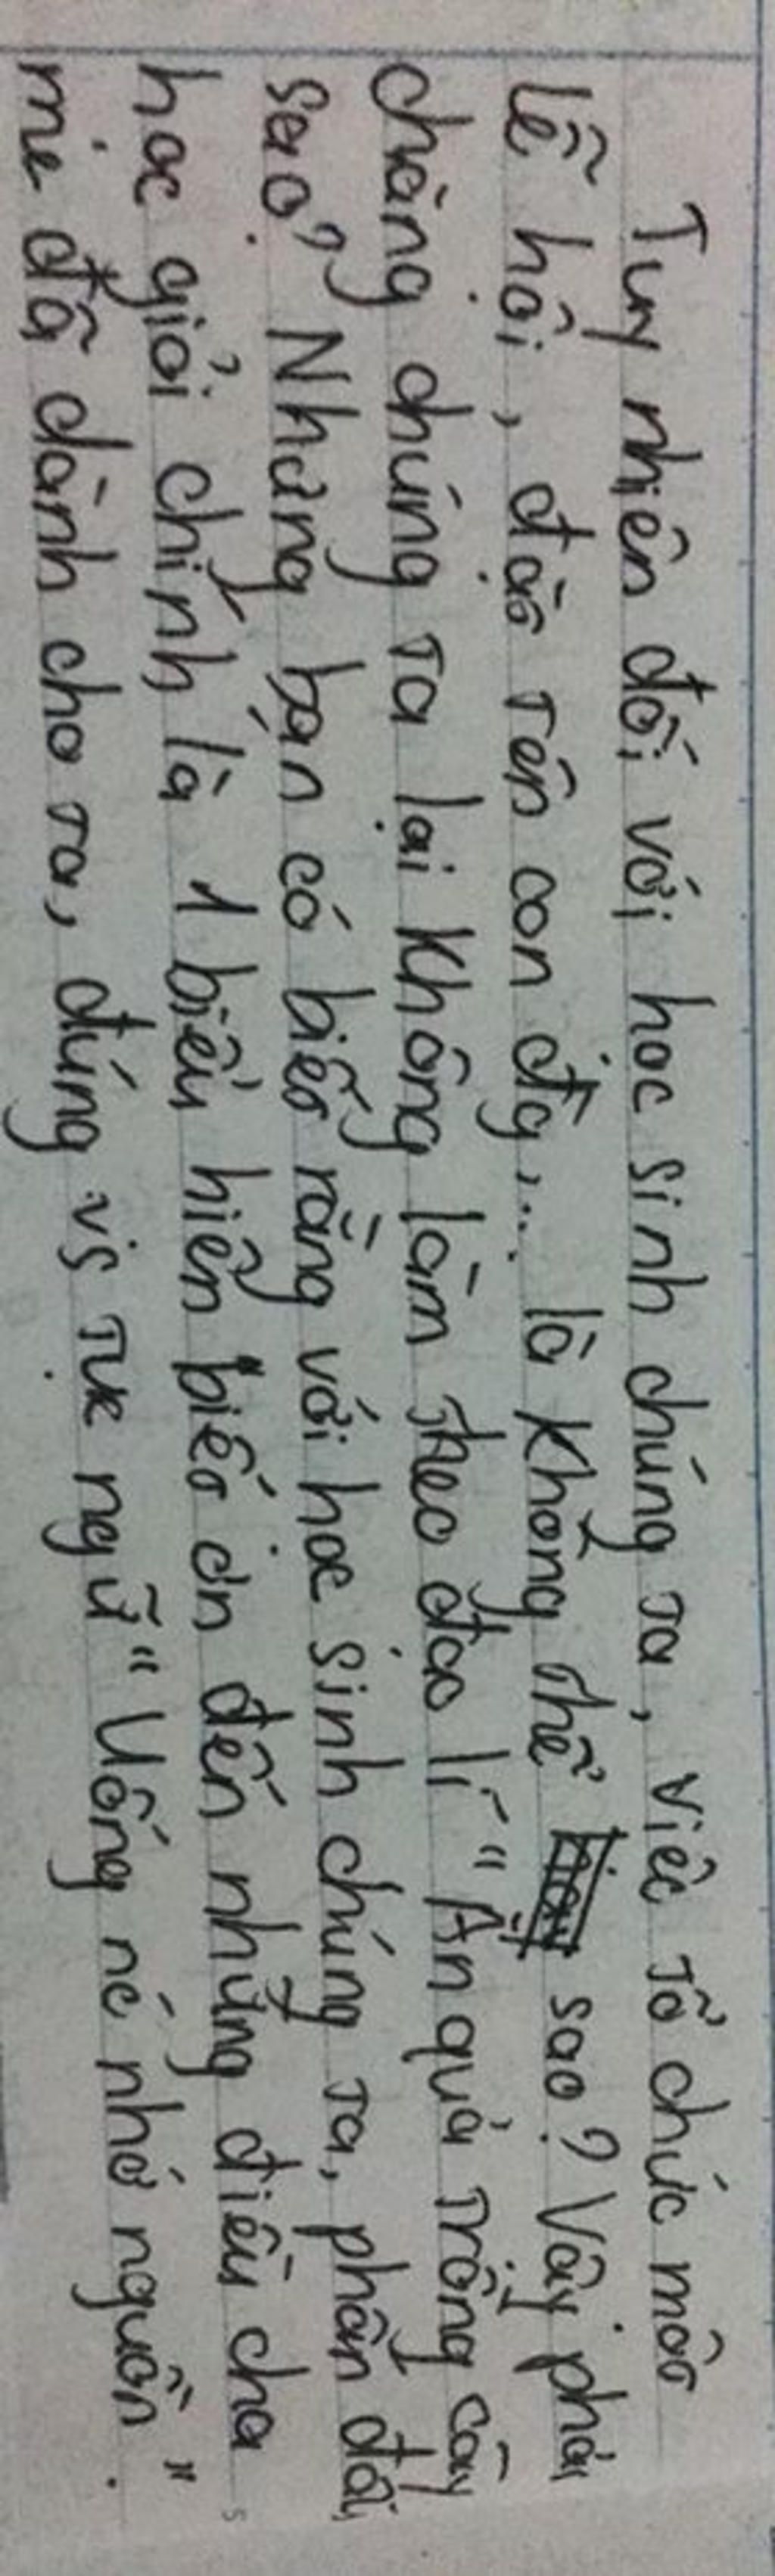 Tuy nhiên đối với học sinh chúng ta, việc tổ chức một
lễ hội, đặt tên con đg,... là không thể sao? Vậy phải
chăng chúng ta lại không làm theo đạo lí "Ăn quả trồng cây
sao? Nhưng bạn có biết rằng với học sinh chúng ta, phấn đấu
học giỏi chính là 1 biểu hiện biết ơn đến những điều cha
mẹ đã dành cho ta, đúng vs tục ngữ "Uống nc nhớ nguồn".